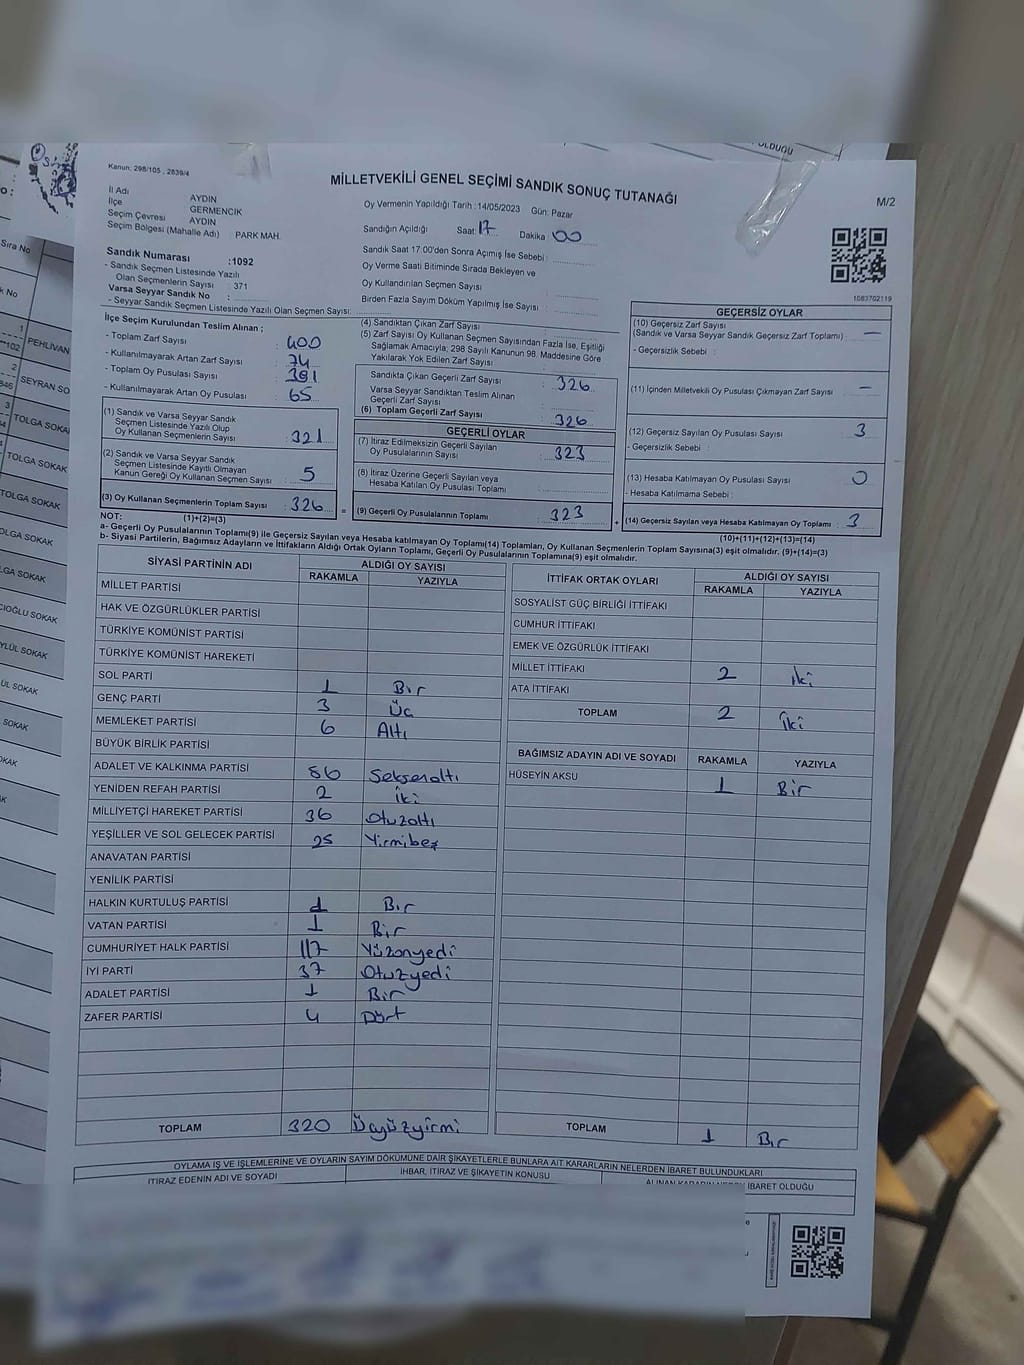 OLDUĞU
Kanun: 298/105 , 2839/4
MİLLETVEKİLİ GENEL SEÇİMİ SANDIK SONUÇ TUTANAĞI
M/2
İl Adı AYDIN
İlçe GERMENCİK
Seçim Çevresi AYDIN
Seçim Bölgesi (Mahalle Adı) : PARK MAH.
Sandık Numarası :1092
- Sandık Seçmen Listesinde Yazılı
Olan Seçmenlerin Sayısı : 371
Varsa Seyyar Sandık No :
- Seyyar Sandık Seçmen Listesinde Yazılı Olan Seçmen Sayısı:
Oy Vermenin Yapıldığı Tarih :14/05/2023 Gün: Pazar
Sandığın Açıldığı Saat: 17 Dakika 00
Sandık Saat 17:00'den Sonra Açımış İse Sebebi :
Oy Verme Saati Bitiminde Sırada Bekleyen ve
Oy Kullandırılan Seçmen Sayısı :
Birden Fazla Sayım Döküm Yapılmış İse Sayısı :
1083702119
İlçe Seçim Kurulundan Teslim Alınan ;
- Toplam Zarf Sayısı : 400
- Kullanılmayarak Artan Zarf Sayısı : 74
- Toplam Oy Pusulası Sayısı : 391
- Kullanılmayarak Artan Oy Pusulası : 65
(1) Sandık ve Varsa Seyyar Sandık
Seçmen Listesinde Yazılı Olup
Oy Kullanan Seçmenlerin Sayısı : 321
(2) Sandık ve Varsa Seyyar Sandık
Seçmen Listesinde Kayıtlı Olmayan
Kanun Gereği Oy Kullanan Seçmen Sayısı : 5
(3) Oy Kullanan Seçmenlerin Toplam Sayısı : 326
(4) Sandıktan Çıkan Zarf Sayısı
(5) Zarf Sayısı Oy Kullanan Seçmen Sayısından Fazla İse, Eşitliği
Sağlamak Amacıyla; 298 Sayılı Kanunun 98. Maddesine Göre
Yakılarak Yok Edilen Zarf Sayısı :
Sandıkta Çıkan Geçerli Zarf Sayısı : 326
Varsa Seyyar Sandıktan Teslim Alınan
Geçerli Zarf Sayısı :
(6) Toplam Geçerli Zarf Sayısı : 326
GEÇERLİ OYLAR
(7) İtiraz Edilmeksizin Geçerli Sayılan
Oy Pusulalarının Sayısı : 323
(8) İtiraz Üzerine Geçerli Sayılan veya
Hesaba Katılan Oy Pusulası Toplamı :
= (9) Geçerli Oy Pusulalarının Toplamı : 323 +
GEÇERSİZ OYLAR
(10) Geçersiz Zarf Sayısı
(Sandık ve Varsa Seyyar Sandık Geçersiz Zarf Toplamı) : —
- Geçersizlik Sebebi :
(11) İçinden Milletvekili Oy Pusulası Çıkmayan Zarf Sayısı : —
(12) Geçersiz Sayılan Oy Pusulası Sayısı : 3
- Geçersizlik Sebebi :
(13) Hesaba Katılmayan Oy Pusulası Sayısı : 0
- Hesaba Katılmama Sebebi :
(14) Geçersiz Sayılan veya Hesaba Katılmayan Oy Toplamı : 3
NOT: (1)+(2)=(3)
(10)+(11)+(12)+(13)=(14)
a- Geçerli Oy Pusulalarının Toplamı(9) ile Geçersiz Sayılan veya Hesaba Katılmayan Oy Toplamı(14) Toplamları, Oy Kullanan Seçmenlerin Toplam Sayısına(3) eşit olmalıdır. (9)+(14)=(3)
b- Siyasi Partilerin, Bağımsız Adayların ve İttifakların Aldığı Ortak Oyların Toplamı, Geçerli Oy Pusulalarının Toplamına(9) eşit olmalıdır.
SİYASİ PARTİNİN ADI ALDIĞI OY SAYISI
RAKAMLA YAZIYLA
MİLLET PARTİSİ
HAK VE ÖZGÜRLÜKLER PARTİSİ
TÜRKİYE KOMÜNİST PARTİSİ
TÜRKİYE KOMÜNİST HAREKETİ
SOL PARTİ 1 Bir
GENÇ PARTİ 3 Üç
MEMLEKET PARTİSİ 6 Altı
BÜYÜK BİRLİK PARTİSİ
ADALET VE KALKINMA PARTİSİ 86 Seksenaltı
YENİDEN REFAH PARTİSİ 2 İki
MİLLİYETÇİ HAREKET PARTİSİ 36 Otuzaltı
YEŞİLLER VE SOL GELECEK PARTİSİ 25 Yirmibeş
ANAVATAN PARTİSİ
YENİLİK PARTİSİ
HALKIN KURTULUŞ PARTİSİ 1 Bir
VATAN PARTİSİ 1 Bir
CUMHURİYET HALK PARTİSİ 117 Yüzonyedi
İYİ PARTİ 37 Otuzyedi
ADALET PARTİSİ 1 Bir
ZAFER PARTİSİ 4 Dört
TOPLAM 320 Üçyüzyirmi
İTTİFAK ORTAK OYLARI ALDIĞI OY SAYISI
RAKAMLA YAZIYLA
SOSYALİST GÜÇ BİRLİĞİ İTTİFAKI
CUMHUR İTTİFAKI
EMEK VE ÖZGÜRLÜK İTTİFAKI
MİLLET İTTİFAKI 2 İki
ATA İTTİFAKI
TOPLAM 2 İki
BAĞIMSIZ ADAYIN ADI VE SOYADI RAKAMLA YAZIYLA
HÜSEYİN AKSU 1 Bir
TOPLAM 1 Bir
OYLAMA İŞ VE İŞLEMLERİNE VE OYLARIN SAYIM DÖKÜMÜNE DAİR ŞİKAYETLERLE BUNLARA AİT KARARLARIN NELERDEN İBARET BULUNDUKLARI
İTİRAZ EDENİN ADI VE SOYADI İHBAR, İTİRAZ VE ŞİKAYETİN KONUSU İBARET OLDUĞU
Sıra No
PEHLİVAN
SEYRAN SO
TOLGA SOKA
TOLGA SOKAK
TOLGA SOKAK
OLGA SOKAK
LGA SOKAK
CIOĞLU SOKAK
YLÜL SOKAK
ÜL SOKAK
SOKAK
OKAK